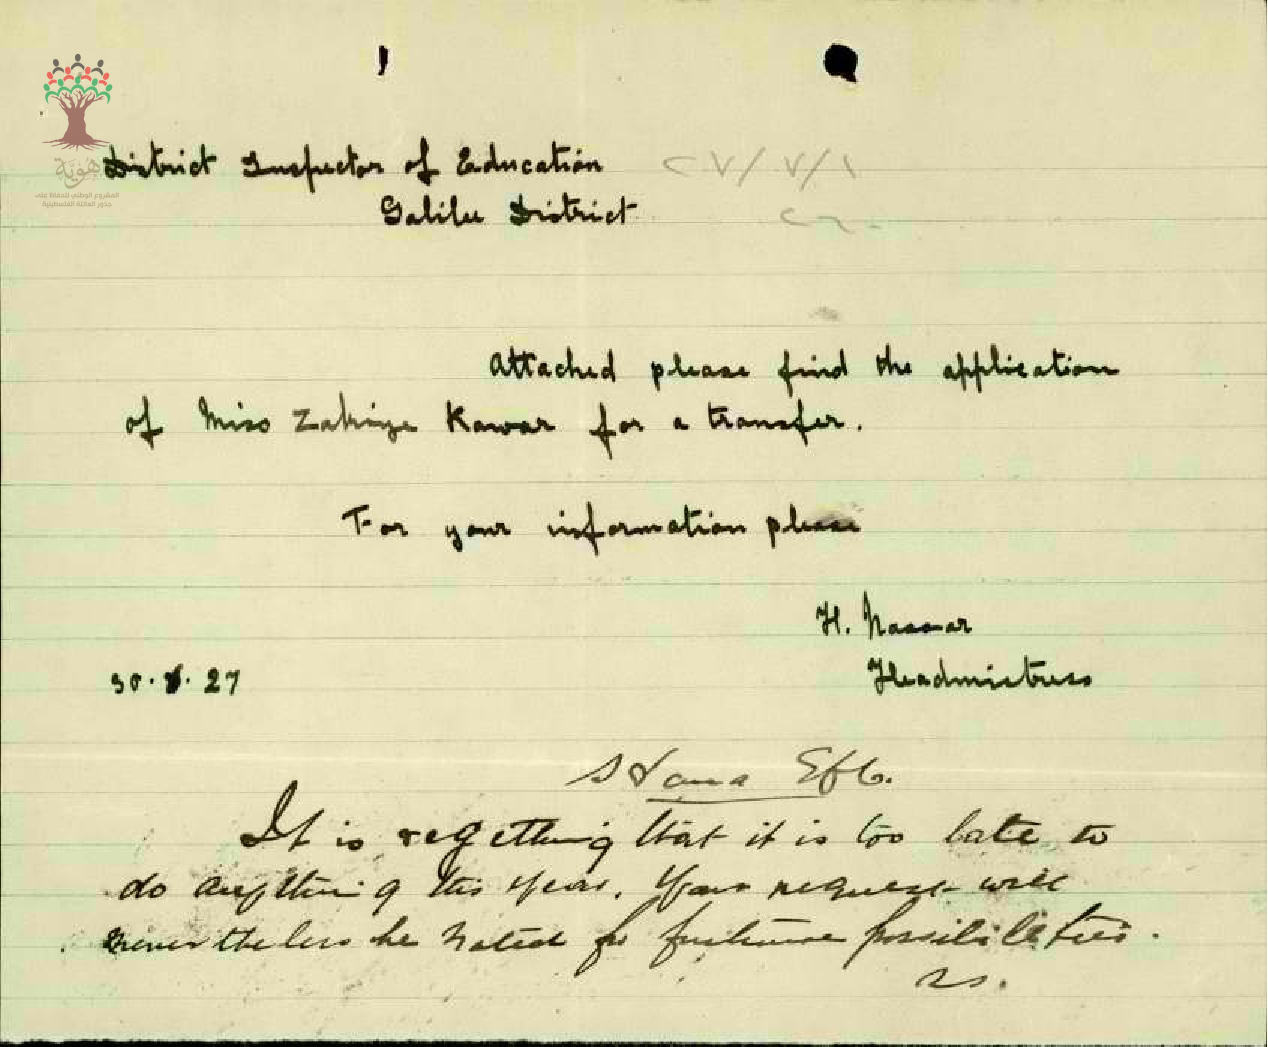 هوية
المشروع الوطني للحفاظ على
جذور العائلة الفلسطينية
District Inspector of Education
Galilee District
Attached please find the application
of Miss Zakiye Kawar for a transfer.
For your information please
H. Nassar
Headmistress
30. 27
It is regetting that it is too late to
do anything this year. Your request will
never the less be noted for future possibilities.